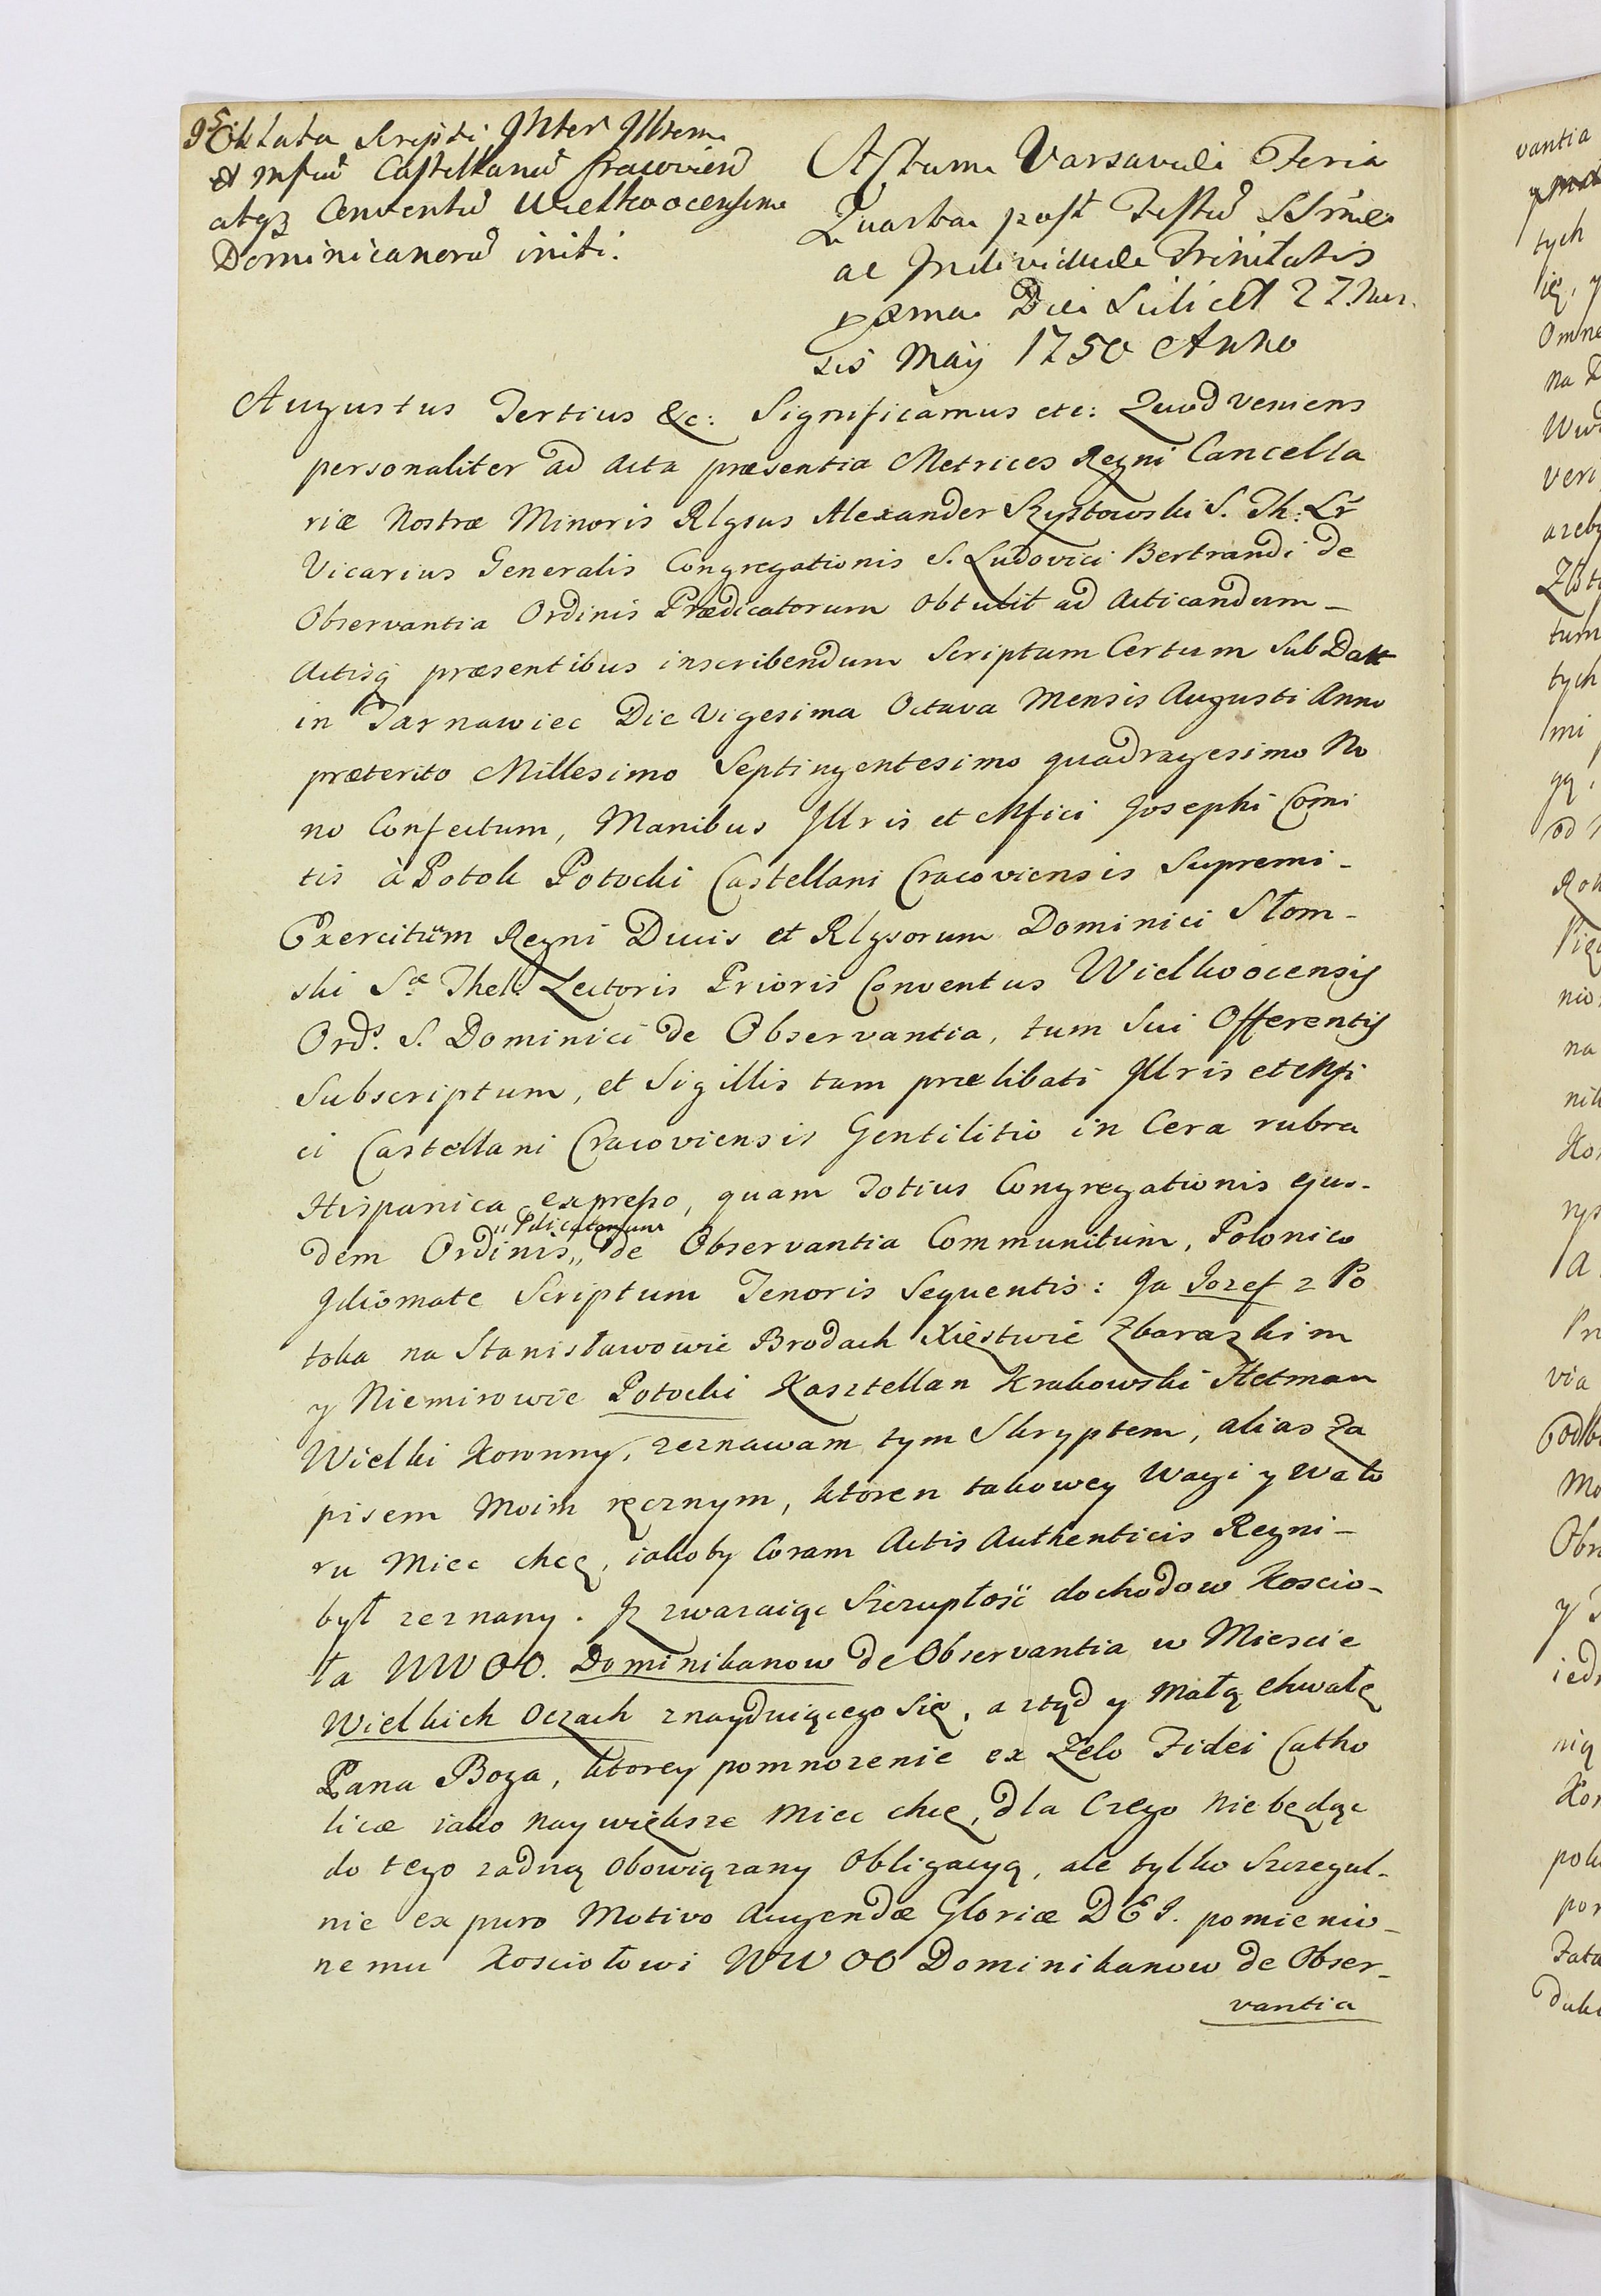 Oblata Scripti Inter Illrem
et Mfcũ Castellanũ Cracovień
atqȝ Conventũ Wielkoocensem
Dominicanorũ initi.
Actum Varsaviæ Feria
Quarta post Festũ SSmæ
ac Individuæ Trinitatis
pxma Die Scilicet 27 Men
sis Maÿ 1750 Anno
Augustus Tertius &c: Significamus etc: Quod veniens
personaliter ad Acta præsentia Metrices Regni Cancella
riæ Nostræ Minoris Rlgsus Alexander Szystowski S. Th: Lr
Vicarius Generalis Congregationis S. Ludovici Bertrandi de
Observantia Ordinis Prædicatorum obtulit ad Acticandum -
Actisq præsentibus inscribendum Scriptum Certum Sub Datt
in Tarnawiec Die Vigesima Octava Mensis Augusti Anno
præterito Millesimo Septingentesimo quadragesimo No
no Confectum, Manibus Illris et Mfici Josephi Comi
tis à Potok Potocki Castellani Cracoviensis Supremi -
Exercituum Regni Ducis et Rlgsorum Dominici Słom-
ski Sæ Thel: Lectoris Prioris Conventus Wielkoocensis
Ords. S. Dominici de Observantia, tum Sui Offerentis
Subscriptum, et Sigillis tam prælibati Illris et Mfi
ci Castellani Cracoviensis Gentilitio in Cera rubra
Hispanica expresso, quam Totius Congregationis ejus-
dem Ordinis „Pdicatorum„ de Observantia Communitum, Polonico
Idiomate Scriptum Tenoris Sequentis: Ja Jozef z Po
toka na Stanisławowie Brodach Xięstwie Zbarazkim
y Niemirowie Potocki Kasztellan Krakowski Hetman
Wielki Koronny, zeznawam tym Skryptem, alias Za
pisem Moim ręcznym, ktoren takowey Wagi y Walo
ru Miec chcę, iakoby Coram Actis Authenticis Regni -
był zeznany. Iz zwazaiąc Szczupłość dochodow Koscio-
ła WWOO. Dominikanow de Observantia w Miescie
Wielkich Oczach znayduiącego Się, a ztąd y Małą Chwałę
Pana Boga, ktorey pomnozenie ex Zelo Fidei Catho
licæ iako naywiększe Miec chcę, dla Czego nie będąc
do tego zadną obowiązany Obligacyą, ale tylko Szczegul-
nie ex puro Motivo Augendæ Gloriæ DEI. pomienio-
nemu Kosciołowi WWOO Dominikanow de Obser-
vantia